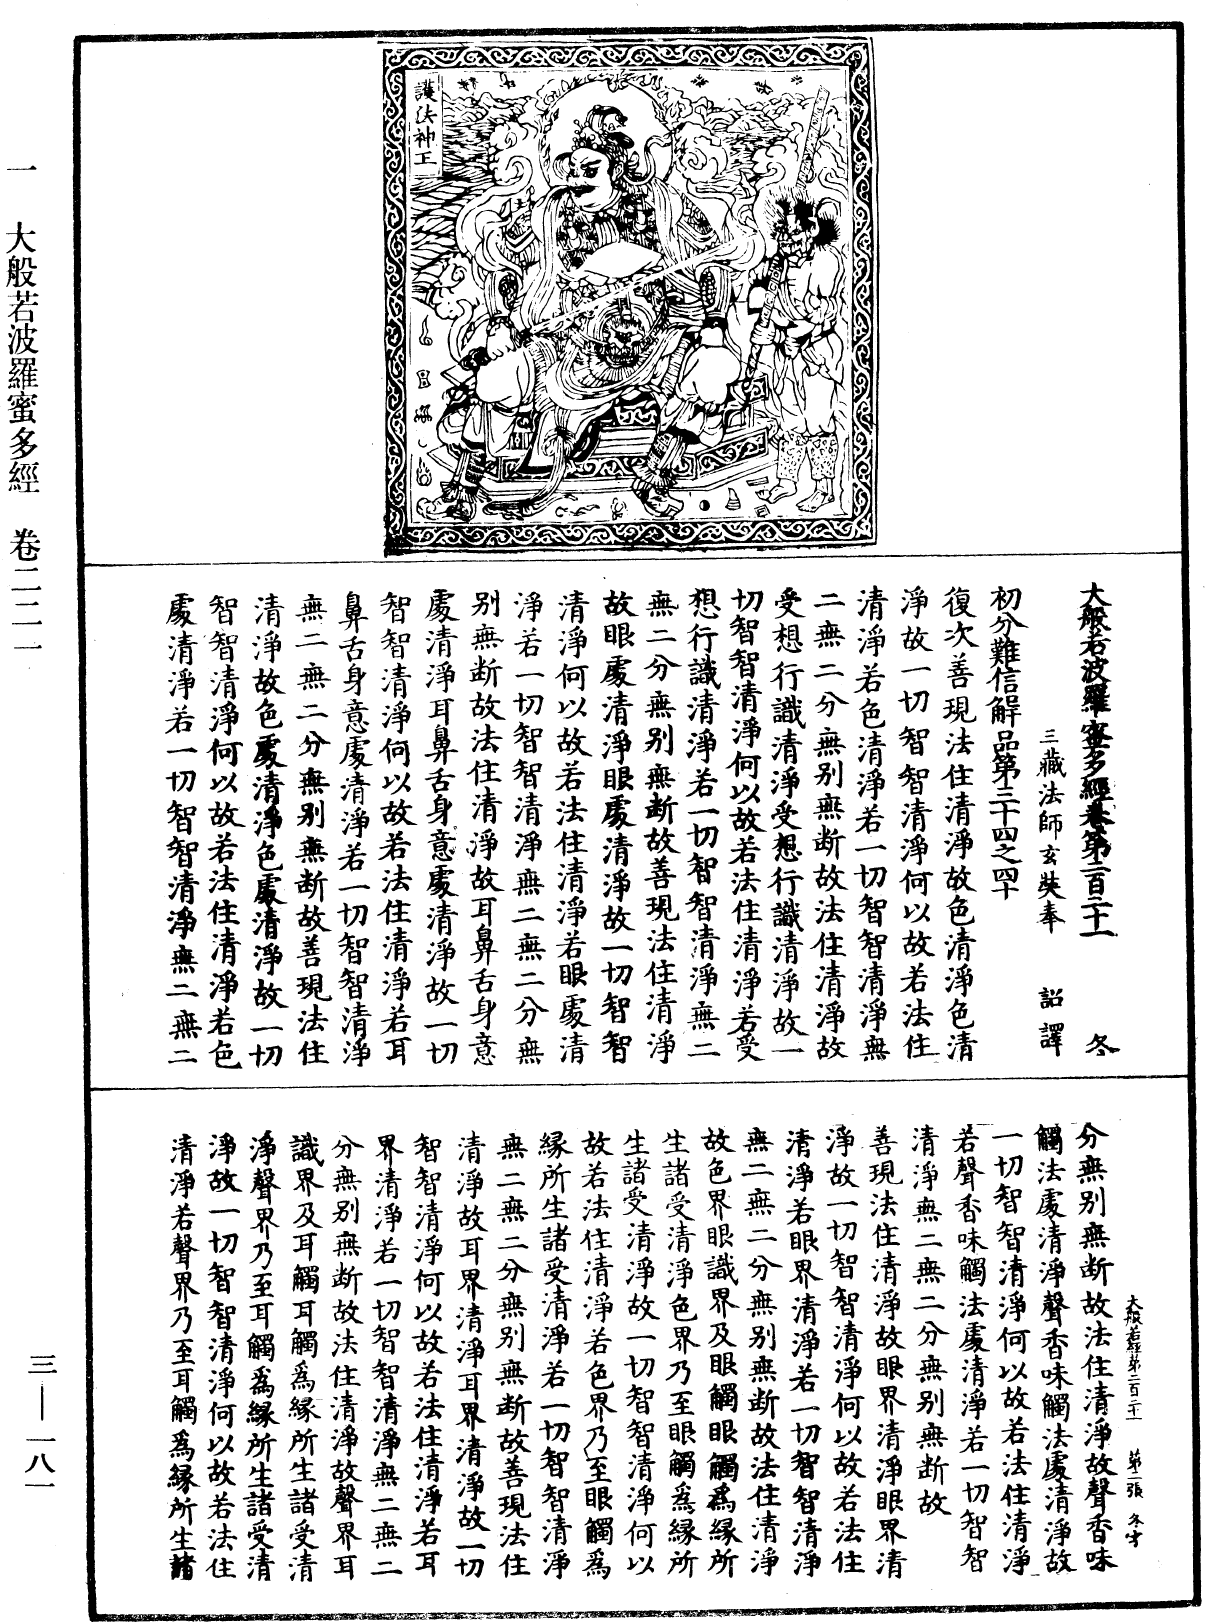 護法神王
大般若波羅蜜多經卷第二百二十一 冬
三藏法師玄奘奉 詔譯
初分難信解品第三十四之四十
復次善現法住清淨故色清淨色清
淨故一切智智清淨何以故若法住
清淨若色清淨若一切智智清淨無
二無二分無別無斷故法住清淨故
受想行識清淨受想行識清淨故一
切智智清淨何以故若法住清淨若受
想行識清淨若一切智智清淨無二
無二分無別無斷故善現法住清淨
故眼處清淨眼處清淨故一切智智
清淨何以故若法住清淨若眼處清
淨若一切智智清淨無二無二分無
別無斷故法住清淨故耳鼻舌身意
處清淨耳鼻舌身意處清淨故一切
智智清淨何以故若法住清淨若耳
鼻舌身意處清淨若一切智智清淨
無二無二分無別無斷故善現法住
清淨故色處清淨色處清淨故一切
智智清淨何以故若法住清淨若色
處清淨若一切智智清淨無二無二
分無別無斷故法住清淨故聲香味
觸法處清淨聲香味觸法處清淨故
一切智智清淨何以故若法住清淨
若聲香味觸法處清淨若一切智智
清淨無二無二分無別無斷故
善現法住清淨故眼界清淨眼界清
淨故一切智智清淨何以故若法住
清淨若眼界清淨若一切智智清淨
無二無二分無別無斷故法住清淨
故色界眼識界及眼觸眼觸為緣所
生諸受清淨色界乃至眼觸為緣所
生諸受清淨故一切智智清淨何以
故若法住清淨若色界乃至眼觸為
緣所生諸受清淨若一切智智清淨
無二無二分無別無斷故善現法住
清淨故耳界清淨耳界清淨故一切
智智清淨何以故若法住清淨若耳
界清淨若一切智智清淨無二無二
分無別無斷故法住清淨故聲界耳
識界及耳觸耳觸為緣所生諸受清
淨聲界乃至耳觸為緣所生諸受清
淨故一切智智清淨何以故若法住
清淨若聲界乃至耳觸為緣所生諸
大般若經第二百二十一 第二張 冬字
一 大般若波羅蜜多經 卷二二一
三—一八一